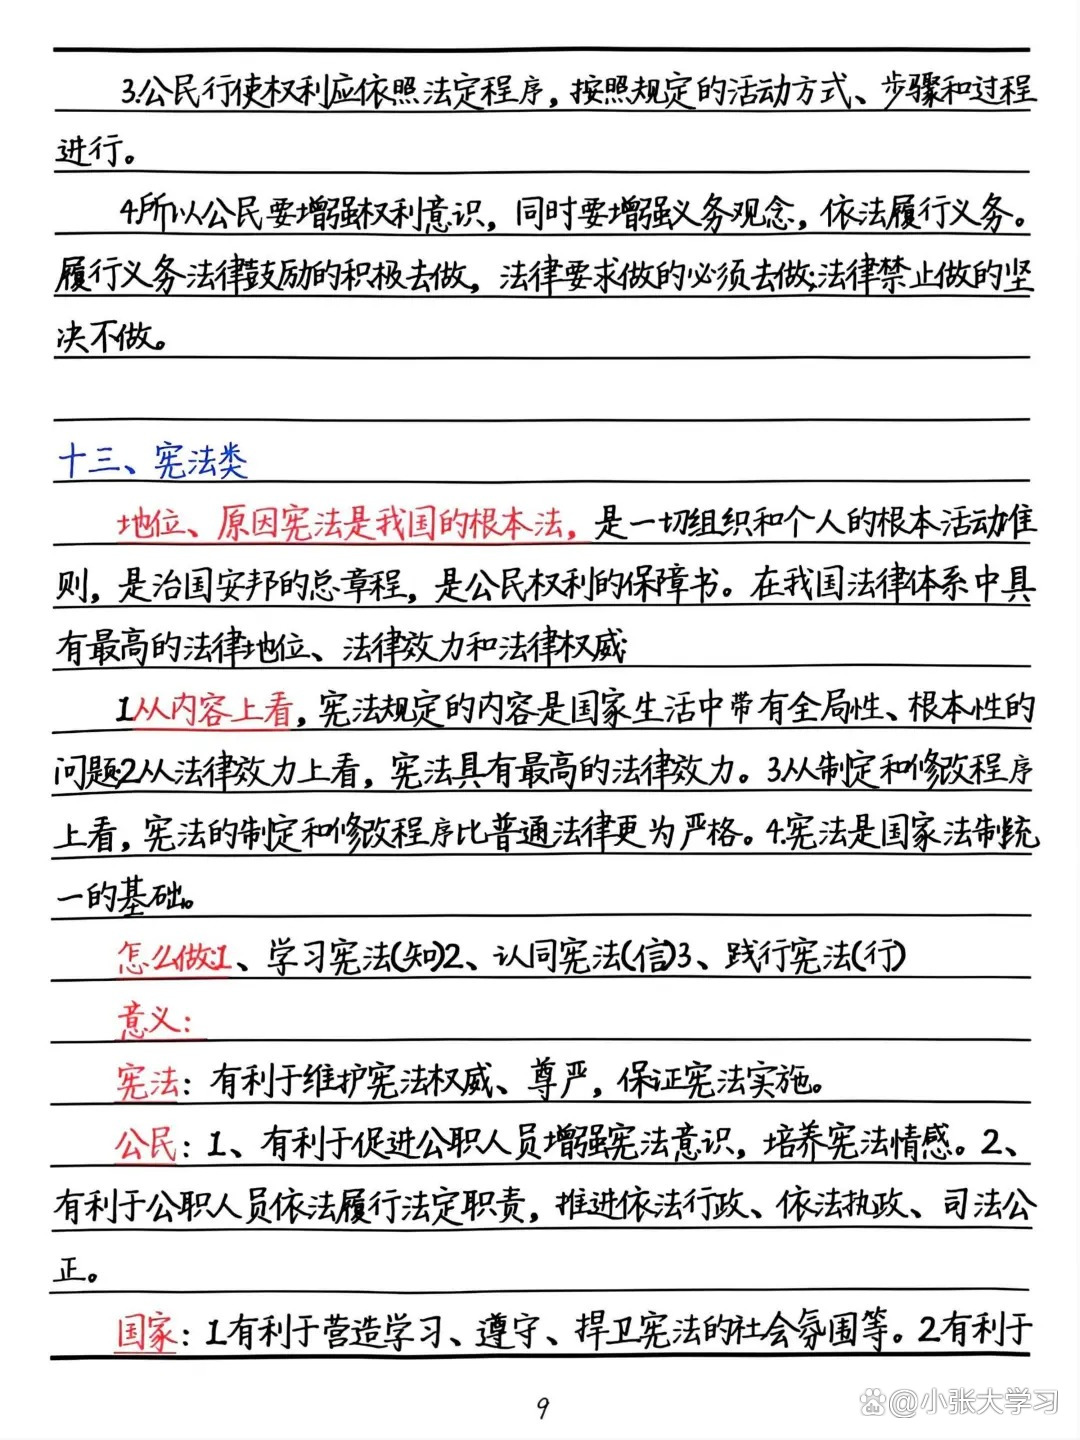 3.公民行使权利应依照法定程序，按照规定的活动方式、步骤和过程
进行。
4.所以公民要增强权利意识，同时要增强义务观念，依法履行义务。
履行义务法律鼓励的积极去做，法律要求做的必须去做;法律禁止做的坚
决不做。
十三、宪法类
地位、原因宪法是我国的根本法，是一切组织和个人的根本活动准
则，是治国安邦的总章程，是公民权利的保障书。在我国法律体系中具
有最高的法律地位、法律效力和法律权威:
1.从内容上看，宪法规定的内容是国家生活中带有全局性、根本性的
问题;2.从法律效力上看，宪法具有最高的法律效力。3.从制定和修改程序
上看，宪法的制定和修改程序比普通法律更为严格。4.宪法是国家法制统
一的基础。
怎么做:1、学习宪法(知)2、认同宪法(信)3、践行宪法(行)
意义：
宪法：有利于维护宪法权威、尊严，保证宪法实施。
公民：1、有利于促进公职人员增强宪法意识，培养宪法情感。2、
有利于公职人员依法履行法定职责，推进依法行政、依法执政、司法公
正。
国家：1.有利于营造学习、遵守、捍卫宪法的社会氛围等。2.有利于
9
du @小张大学习